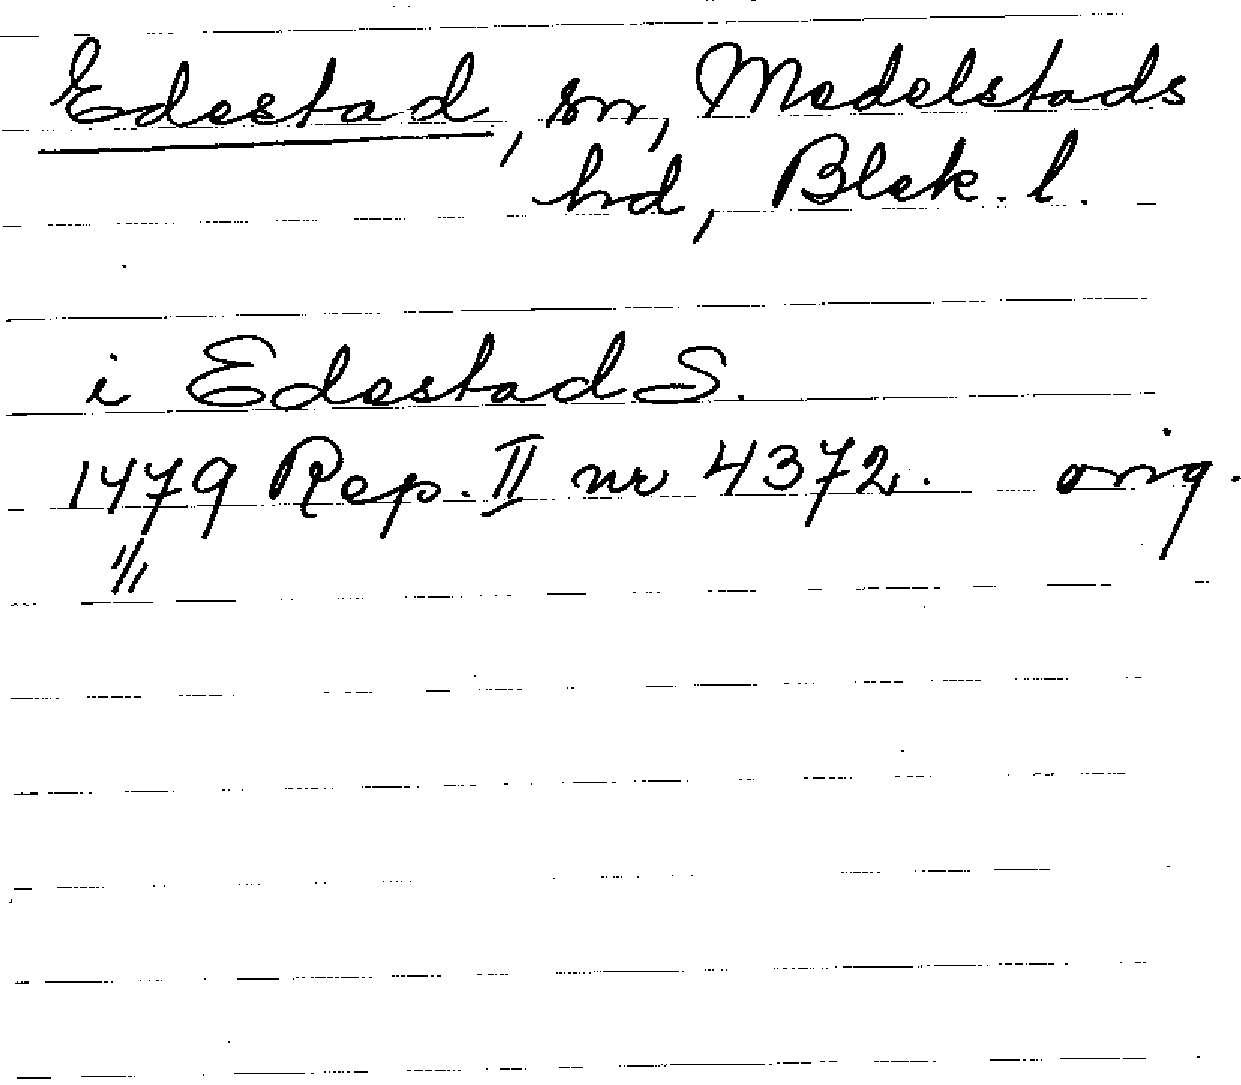 Edestad, sn, Medelstads
hd, Blek. l.
i Edestad S.
1479 Rep. II nr 4372. orig.